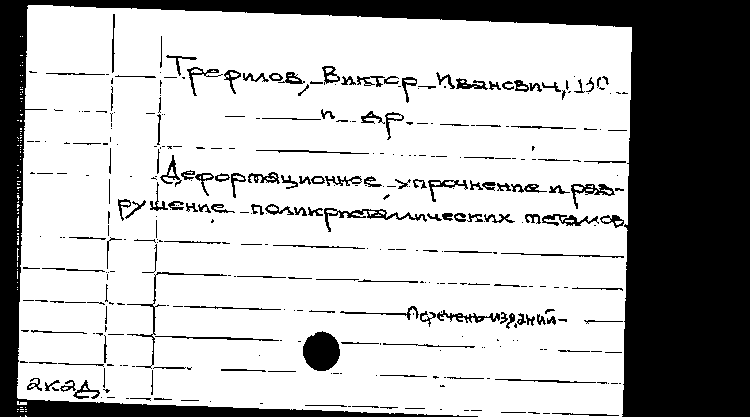 Трефилов, Виктор Иванович,
и др.
Деформационное упрочнение и раз-
рушение поликристаллических металлов.
Перечень изданий
акад.